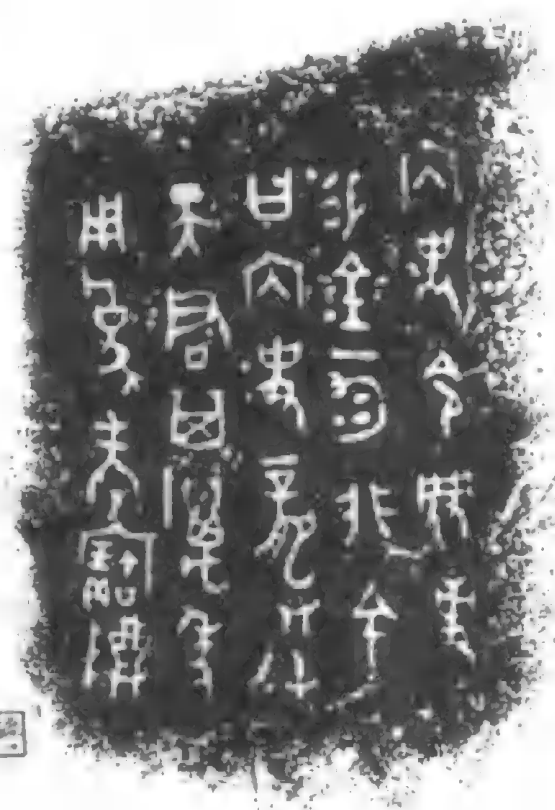 内史令事
易金一匀非余
曰内史龏朕
天君其萬年
用爲考寶尊